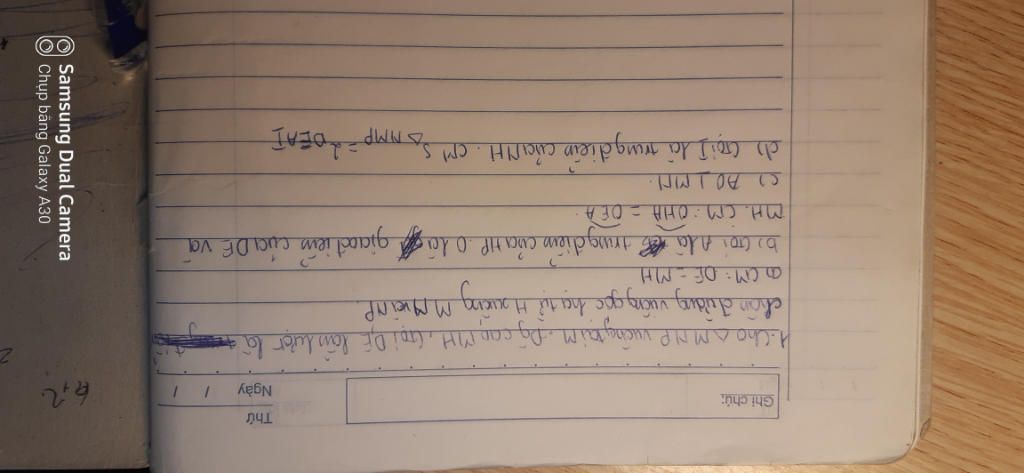 Ghi chú:
Thứ
Ngày / /
1. Cho △MNP vuông tại M. Đg cao MH, Gọi D,E lần lượt là
chân đường vuông góc hạ từ H xuống MN và MP.
a) CM: DE = MH
b) Gọi A là trung điểm của HP. O là giao điểm của DE và
MH. CM: OHA = OEA.
c) AO ⊥ MN.
d) Gọi I là trung điểm của NH. CM S △NMP = 2 DEAI
Samsung Dual Camera
Chụp bằng Galaxy A30